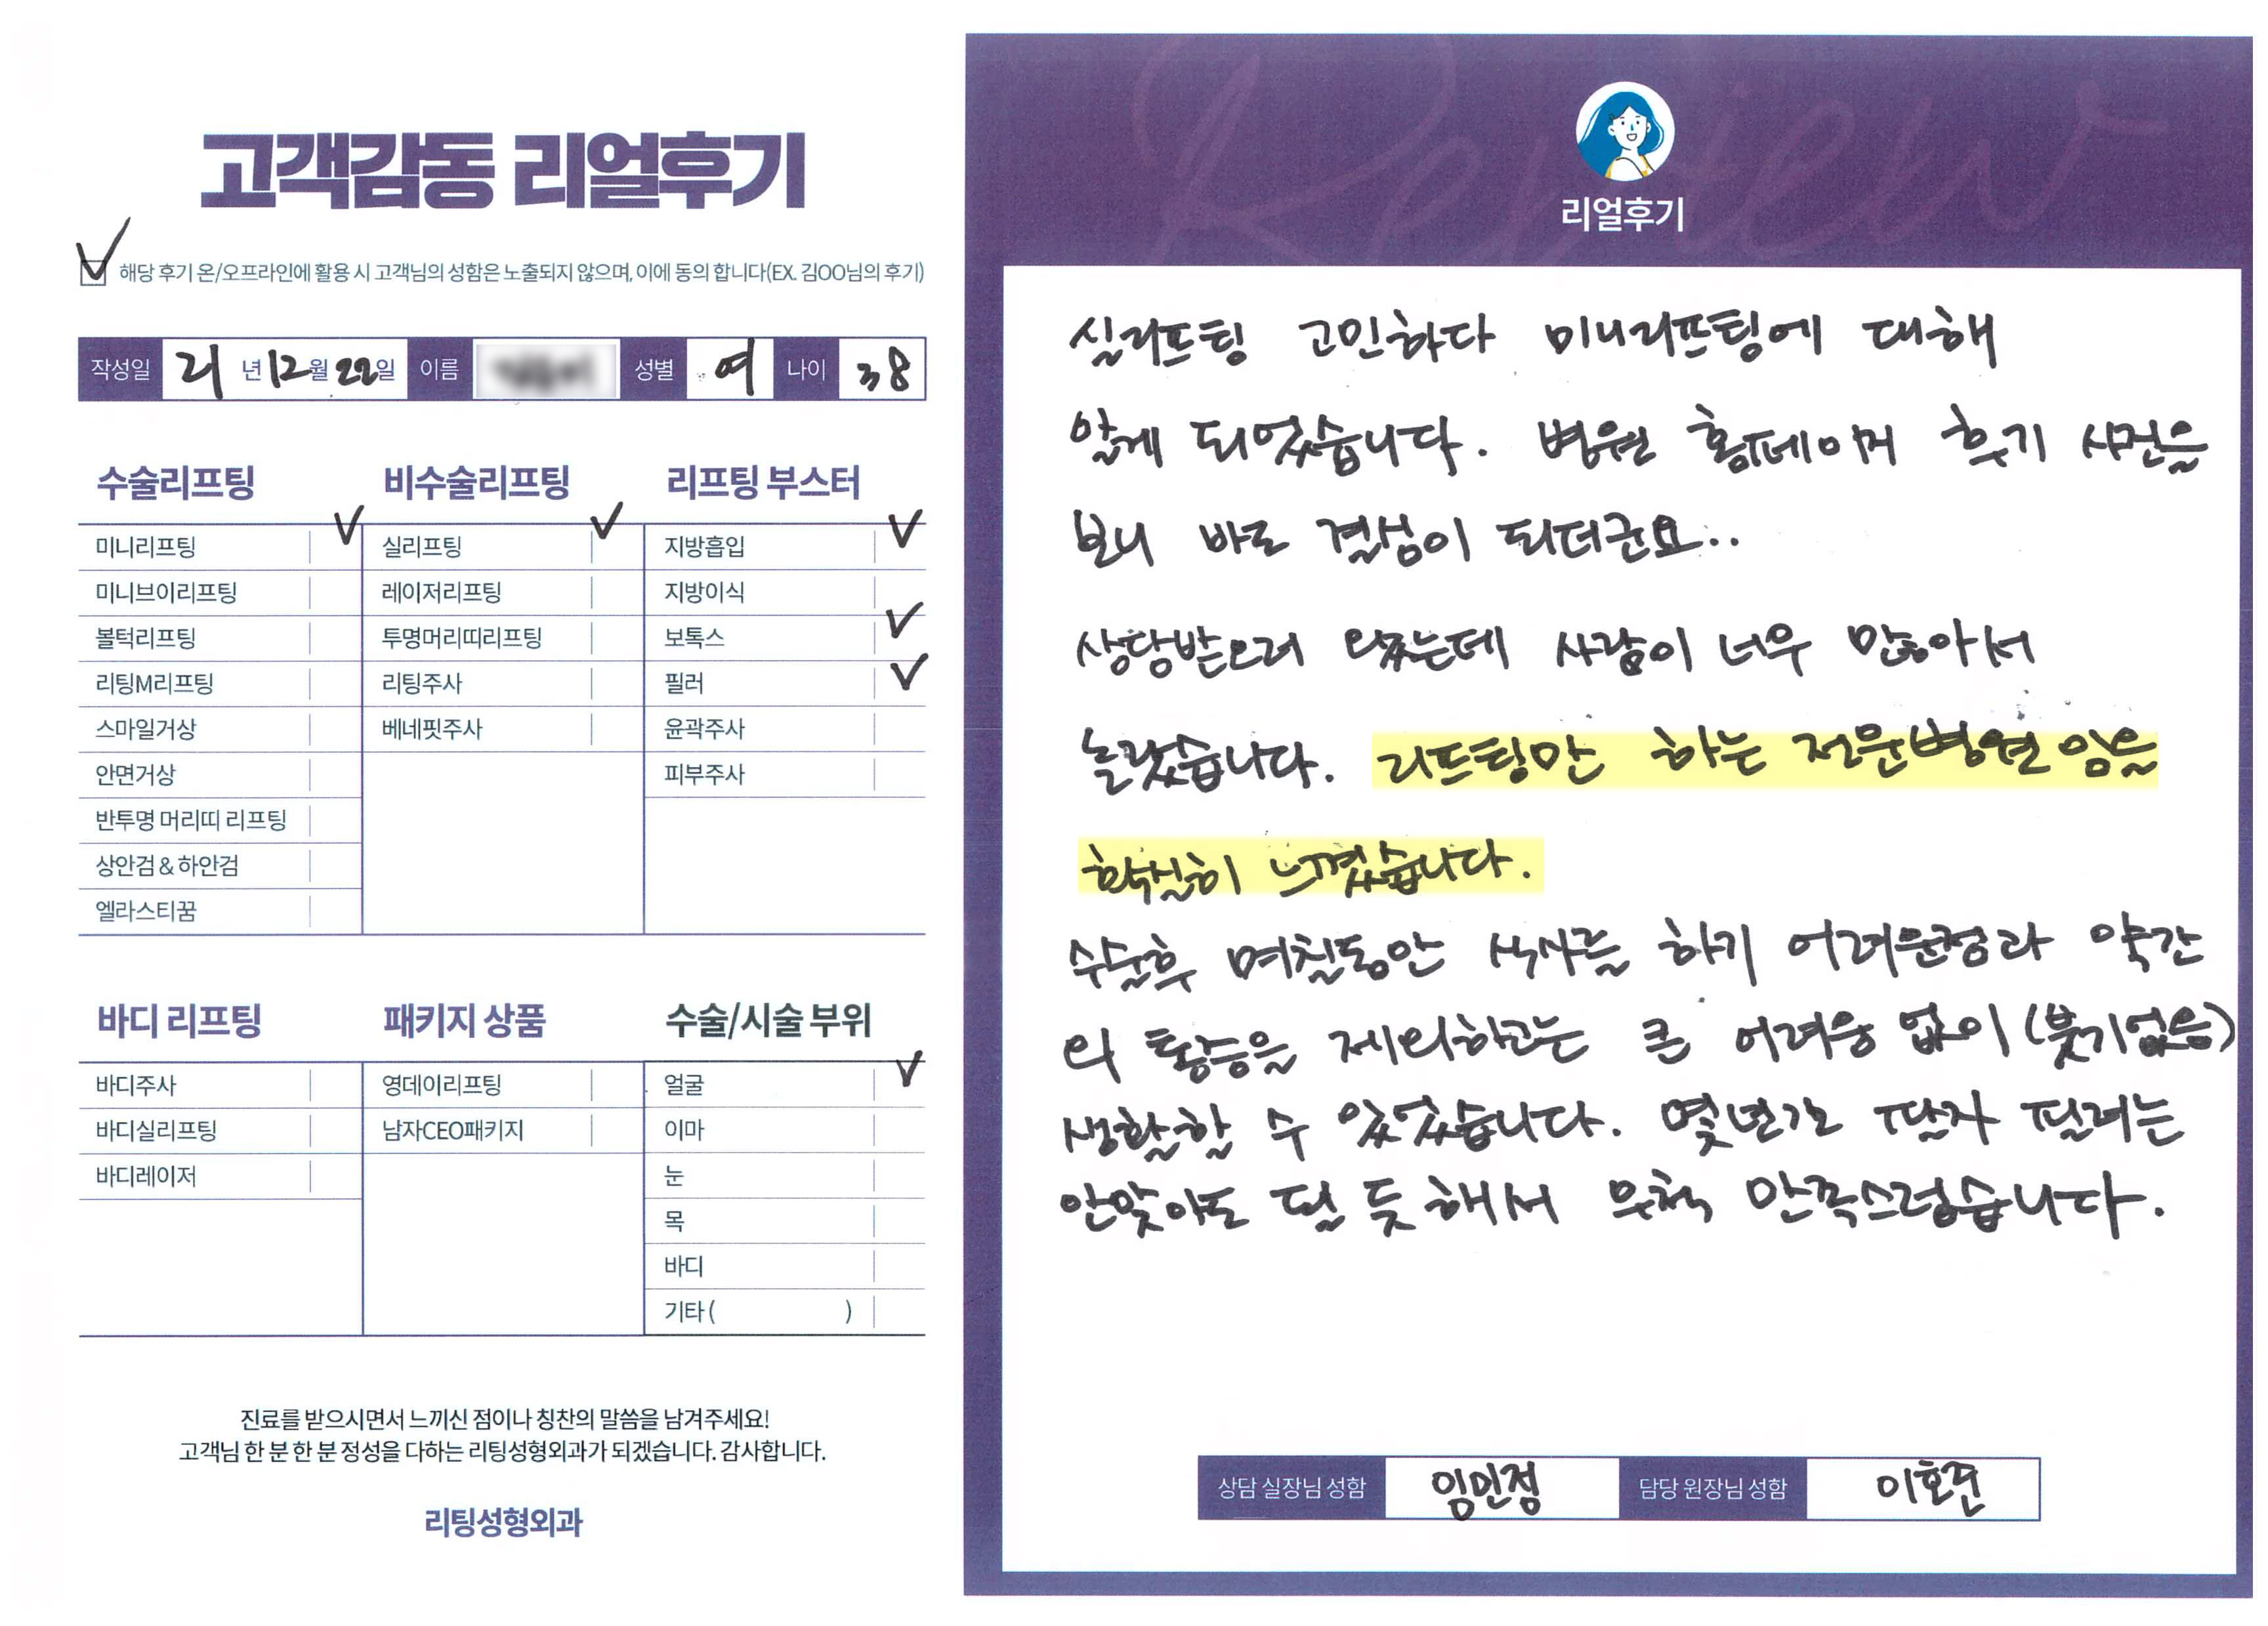 고객감동 리얼후기
해당 후기 온/오프라인에 활용 시 고객님의 성함은 노출되지 않으며, 이에 동의 합니다(EX. 김OO님의 후기)
작성일 21 년 12 월 22 일 이름 성별 여 나이 38
수술리프팅
미니리프팅
미니브이리프팅
볼턱리프팅
리팅M리프팅
스마일거상
안면거상
반투명 머리띠 리프팅
상안검 & 하안검
엘라스티꿈
비수술리프팅
실리프팅
레이저리프팅
투명머리띠리프팅
리팅주사
베네핏주사
리프팅 부스터
지방흡입
지방이식
보톡스
필러
윤곽주사
피부주사
바디 리프팅
바디주사
바디실리프팅
바디레이저
패키지 상품
영데이리프팅
남자CEO패키지
수술/시술 부위
얼굴
이마
눈
목
바디
기타 ( )
진료를 받으시면서 느끼신 점이나 칭찬의 말씀을 남겨주세요!
고객님 한 분 한 분 정성을 다하는 리팅성형외과가 되겠습니다. 감사합니다.
리팅성형외과
Review
리얼후기
실리프팅 고민하다 미니리프팅에 대해
알게 되었습니다. 병원 홈페이지 후기 사진을
보니 바로 결심이 되더군요..
상담받으러 왔는데 사람이 너무 많아서
놀랐습니다. 리프팅만 하는 전문병원 임을
확실히 느꼈습니다.
수술후 며칠동안 식사를 하기 어려운점과 약간
의 통증을 제외하고는 큰 어려움 없이 (붓기없음)
생활할 수 있었습니다. 몇년간 팔자 필러는
안맞아도 될 듯 해서 무척 만족스럽습니다.
상담 실장님 성함 임민정 담당 원장님 성함 이호준